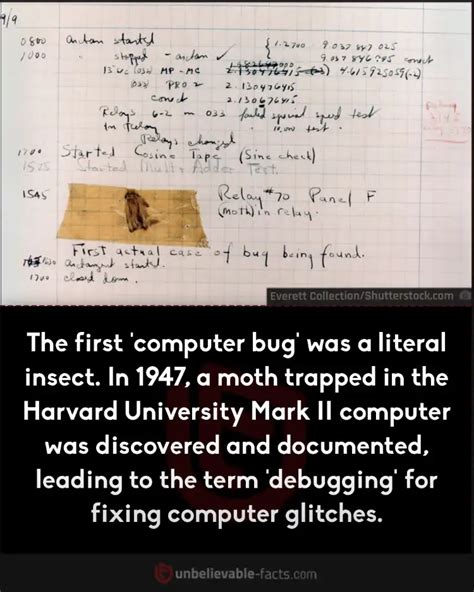 9/9
0800 Antan started
1000 " stopped - antan ✓ { 1.2700 9.037 847 025
9.037 846 995 conect
13"uc (032) MP-MC 4.615925059(-2)
(033) PRO 2 2.130476415
conect 2.130676415
Relays 6-2 in 033 failed special speed test
In Relay 10,000 test.
Relays changed
1700 Started Cosine Tape (Sine check)
1525 Started Mult+Adder Test.
1545 Relay #70 Panel F
(Moth) in relay.
First actual case of bug being found.
antangent started.
1700 closed down.
Everett Collection/Shutterstock.com
The first 'computer bug' was a literal
insect. In 1947, a moth trapped in the
Harvard University Mark II computer
was discovered and documented,
leading to the term 'debugging' for
fixing computer glitches.
unbelievable-facts.com